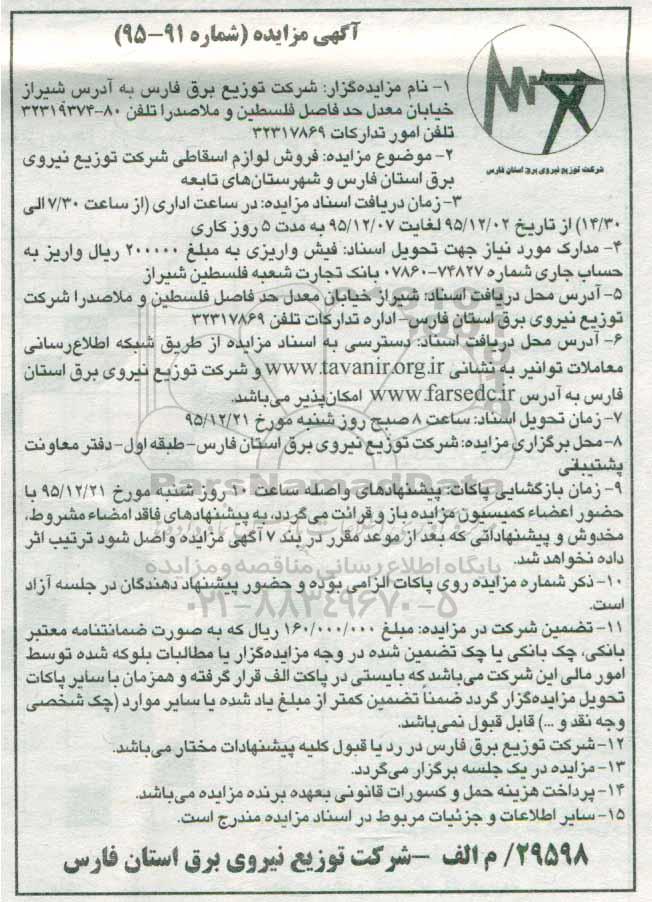 آگهی مزایده (شماره ۹۱-۹۵)
شرکت توزیع نیروی برق استان فارس
۱- نام مزایده‌گزار: شرکت توزیع برق فارس به آدرس شیراز
خیابان معدل حد فاصل فلسطین و ملاصدرا تلفن ۸۰-۳۲۳۱۹۳۷۴
تلفن امور تدارکات ۳۲۳۱۷۸۶۹
۲- موضوع مزایده: فروش لوازم اسقاطی شرکت توزیع نیروی
برق استان فارس و شهرستان‌های تابعه
۳- زمان دریافت اسناد مزایده: در ساعت اداری (از ساعت ۷/۳۰ الی
۱۴/۳۰) از تاریخ ۹۵/۱۲/۰۲ لغایت ۹۵/۱۲/۰۷ به مدت ۵ روز کاری
۴- مدارک مورد نیاز جهت تحویل اسناد: فیش واریزی به مبلغ ۲۰۰۰۰۰ ریال واریز به
حساب جاری شماره ۷۴۸۲۷-۰۷۸۶۰ بانک تجارت شعبه فلسطین شیراز
۵- آدرس محل دریافت اسناد: شیراز خیابان معدل حد فاصل فلسطین و ملاصدرا شرکت
توزیع نیروی برق استان فارس-اداره تدارکات تلفن ۳۲۳۱۷۸۶۹
۶- آدرس محل دریافت اسناد: دسترسی به اسناد مزایده از طریق شبکه اطلاع‌رسانی
معاملات توانیر به نشانی www.tavanir.org.ir و شرکت توزیع نیروی برق استان
فارس به آدرس www.farsedc.ir امکان‌پذیر می‌باشد.
۷- زمان تحویل اسناد: ساعت ۸ صبح روز شنبه مورخ ۹۵/۱۲/۲۱
۸- محل برگزاری مزایده: شرکت توزیع نیروی برق استان فارس-طبقه اول-دفتر معاونت
پشتیبانی
ParsNamadData
۹- زمان بازگشایی پاکات: پیشنهادهای واصله ساعت ۱۰ روز شنبه مورخ ۹۵/۱۲/۲۱ با
حضور اعضاء کمیسیون مزایده باز و قرائت می‌گردد، به پیشنهادهای فاقد امضاء مشروط،
مخدوش و پیشنهاداتی که بعد از موعد مقرر در بند ۷ آگهی مزایده واصل شود ترتیب اثر
داده نخواهد شد.
پایگاه اطلاع رسانی مناقصه و مزایده
۱۰- ذکر شماره مزایده روی پاکات الزامی بوده و حضور پیشنهاد دهندگان در جلسه آزاد
است.
۰۲۱-۸۸۳۴۹۶۷۰-۵
۱۱- تضمین شرکت در مزایده: مبلغ ۱۶۰/۰۰۰/۰۰۰ ریال که به صورت ضمانتنامه معتبر
بانکی، چک بانکی یا چک تضمین شده در وجه مزایده‌گزار یا مطالبات بلوکه شده توسط
امور مالی این شرکت می‌باشد که بایستی در پاکت الف قرار گرفته و همزمان با سایر پاکات
تحویل مزایده‌گزار گردد ضمناً تضمین کمتر از مبلغ یاد شده یا سایر موارد (چک شخصی
وجه نقد و ...) قابل قبول نمی‌باشد.
۱۲- شرکت توزیع برق فارس در رد یا قبول کلیه پیشنهادات مختار می‌باشد.
۱۳- مزایده در یک جلسه برگزار می‌گردد.
۱۴- پرداخت هزینه حمل و کسورات قانونی بعهده برنده مزایده می‌باشد.
۱۵- سایر اطلاعات و جزئیات مربوط در اسناد مزایده مندرج است.
۲۹۵۹۸/ م الف -شرکت توزیع نیروی برق استان فارس